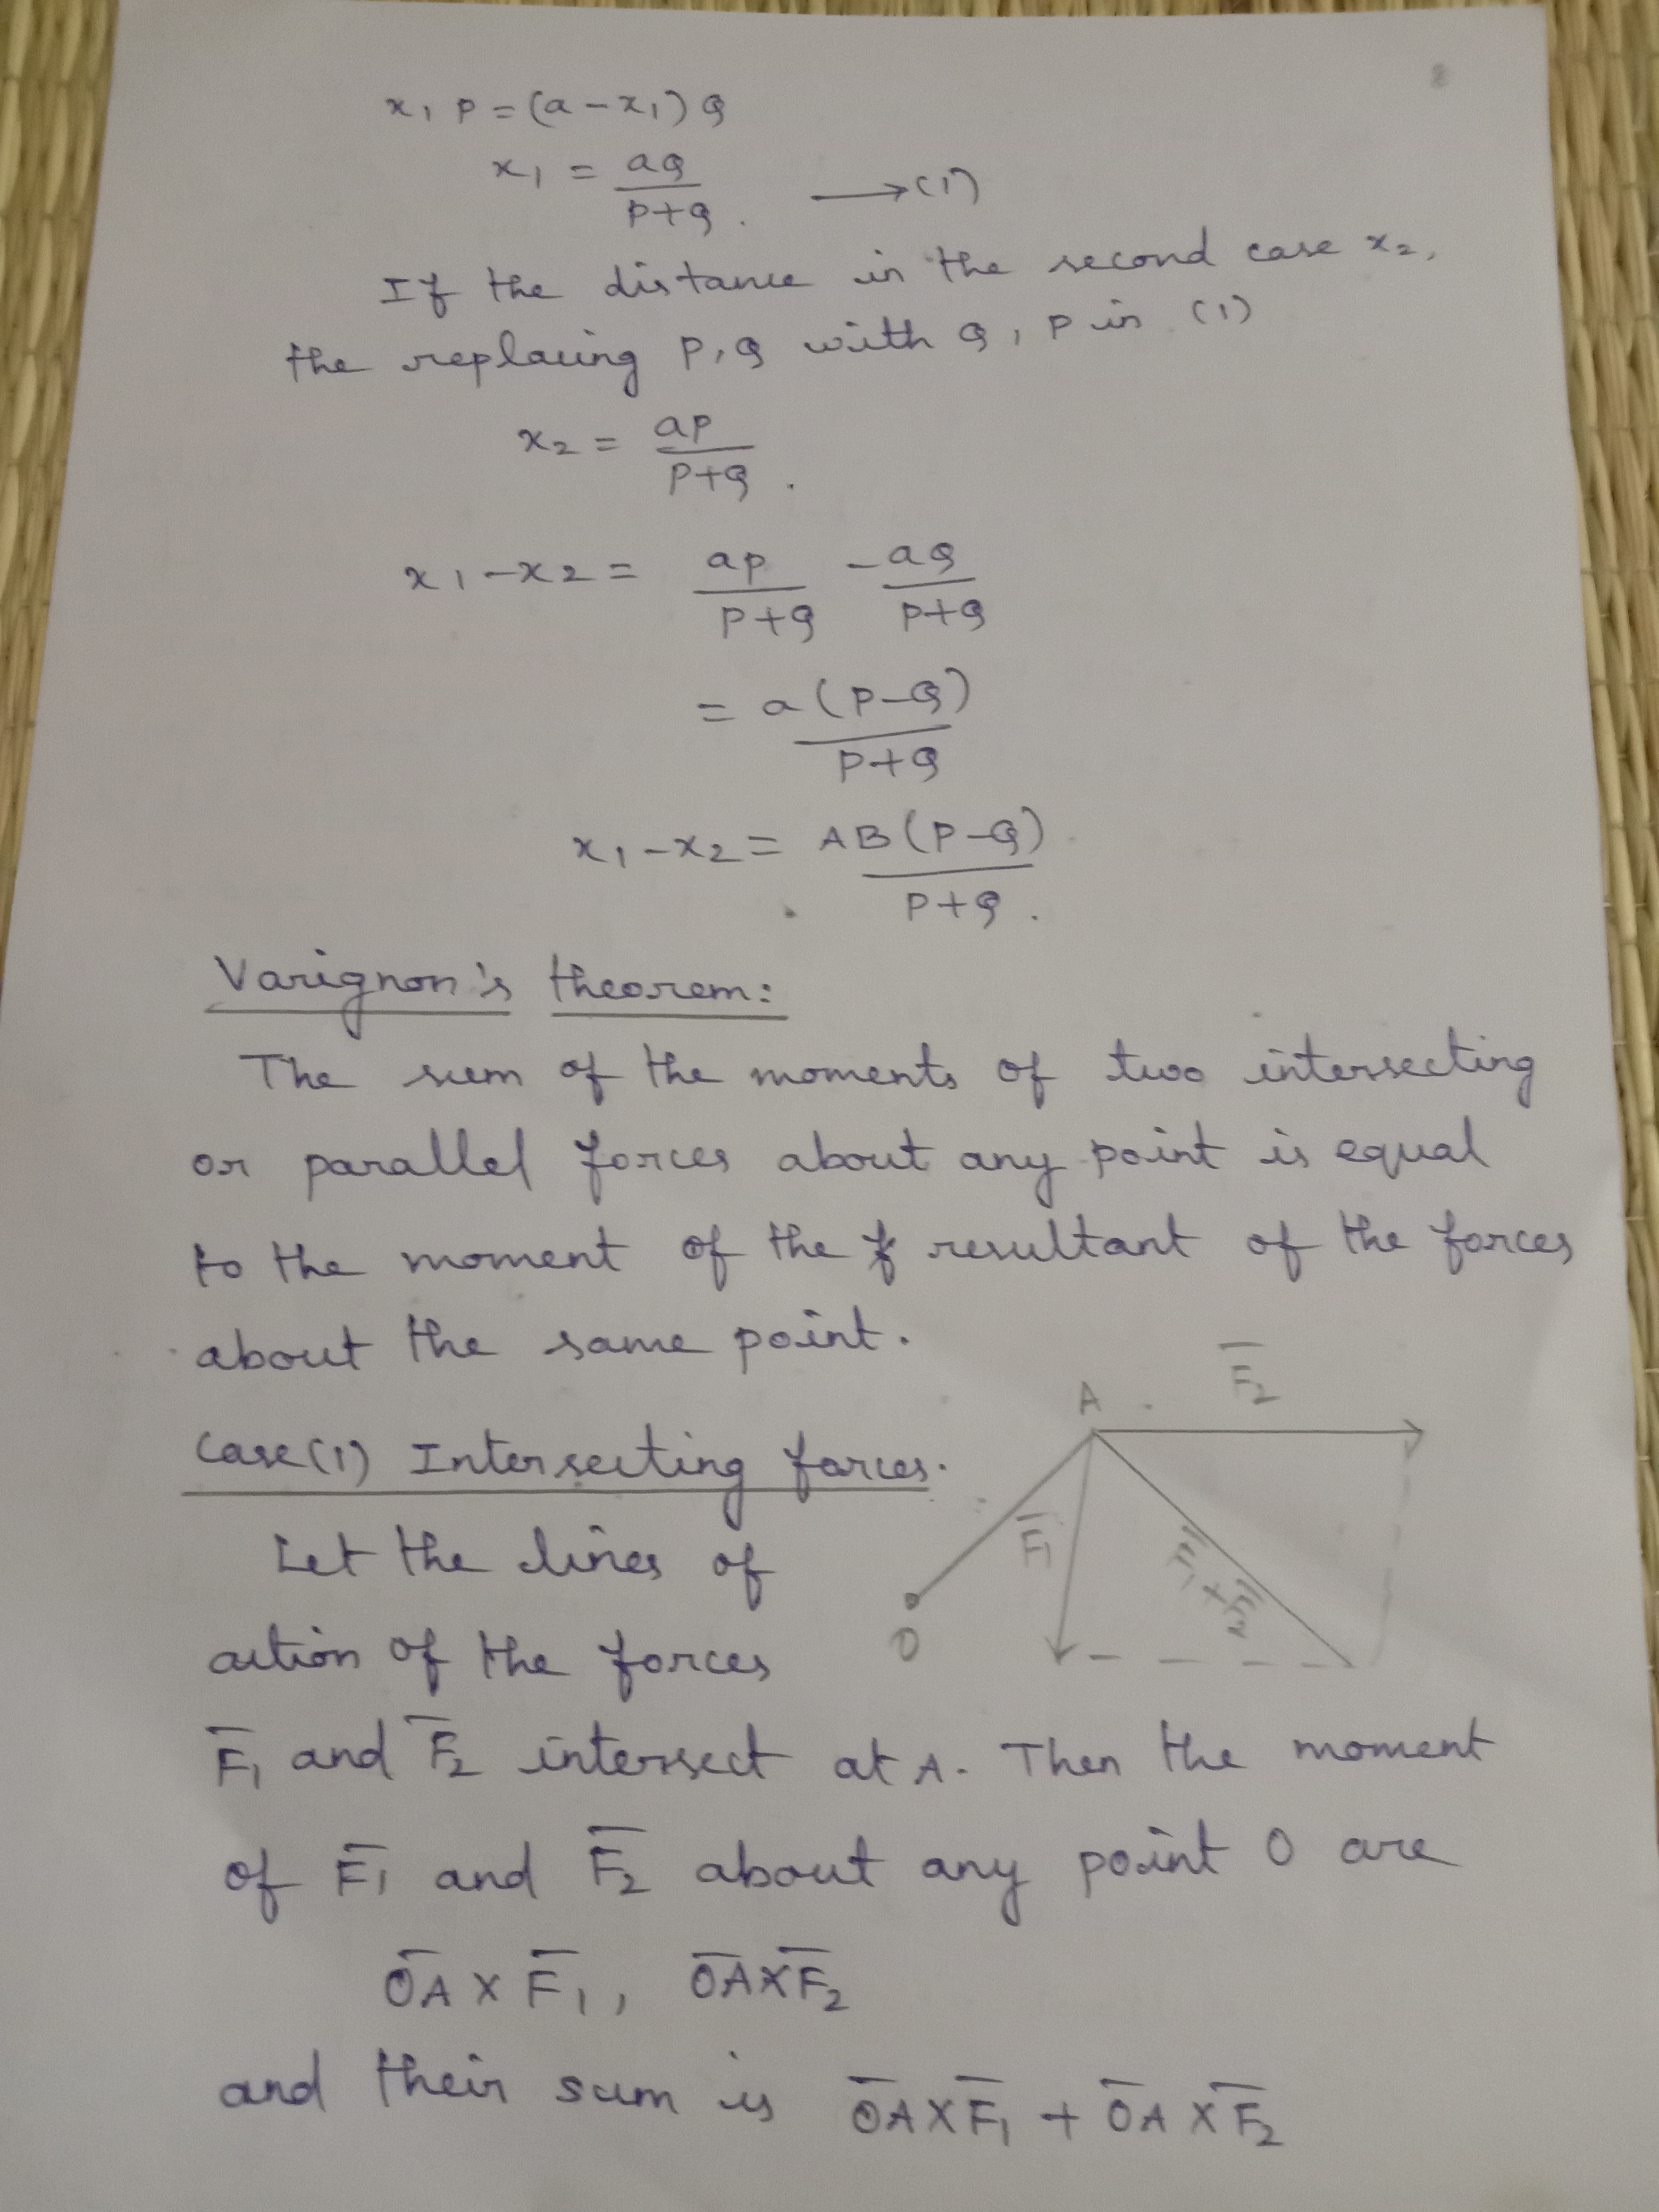 x₁ P = (a - x₁) Q
x₁ = aQ / P+Q . ⟶ (1)
If the distance in the second case x₂,
the replacing P, Q with Q, P in (1)
x₂ = aP / P+Q .
x₁ - x₂ = aP / P+Q - aQ / P+Q
= a(P-Q) / P+Q
x₁ - x₂ = AB(P-Q) / P+Q .
Varignon's theorem:
The sum of the moments of two intersecting
or parallel forces about any point is equal
to the moment of the resultant of the forces
about the same point.
Case(1) Intersecting forces.
A F̅₂
F̅₁ F̅₁+F̅₂
O
Let the lines of
action of the forces
F̅₁ and F̅₂ intersect at A. Then the moment
of F̅₁ and F̅₂ about any point O are
O̅A × F̅₁, O̅A × F̅₂
and their sum is O̅A × F̅₁ + O̅A × F̅₂